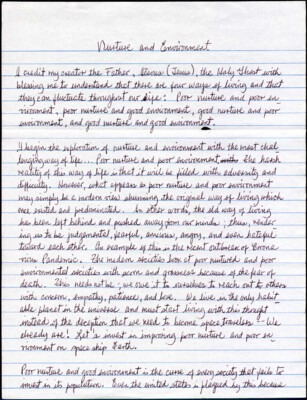 Nurture and Environment
I credit my creator the Father, (Jesus), the Holy Ghost with
blessing me to understand that there are four ways of living and that
they can fluctuate throughout our life: Poor nurture and poor en-
vironment, poor nurture and good environment, good nurture and poor
environment, and good nurture and good environment.
I begin the exploration of nurture and environment with the most chal
lenging way of life... Poor nurture and poor environment the harsh
reality of this way of life is that it will be filled with adversity and
difficulty. However, what appears as poor nurture and poor environment
may simply be a modern view shunning the original way of living which
once existed and predominated. In other words, the old way of living
has been left behind and pushed away from our minds; thus, render-
ing us to be judgmental, fearful, anxious, angry, and even hateful
toward each other. An example of this is the recent outbreak of Corona
virus Pandemic. The modern societies look at poor nurture and poor
environmental societies with scorn and grossness because of the fear of
death. This need not be; we owe it to ourselves to reach out to others
with concern, empathy, patience, and love. We live in the only habit
able planet in the universe and must start living with this thought
instead of the deception that we need to become space travelers - We
already are! Let's invest in improving poor nurture and poor en-
vironment on space ship Earth.
Poor nurture and good environment is the curse of every society that fails to
invest in its population. Even the united states is plagued by this because